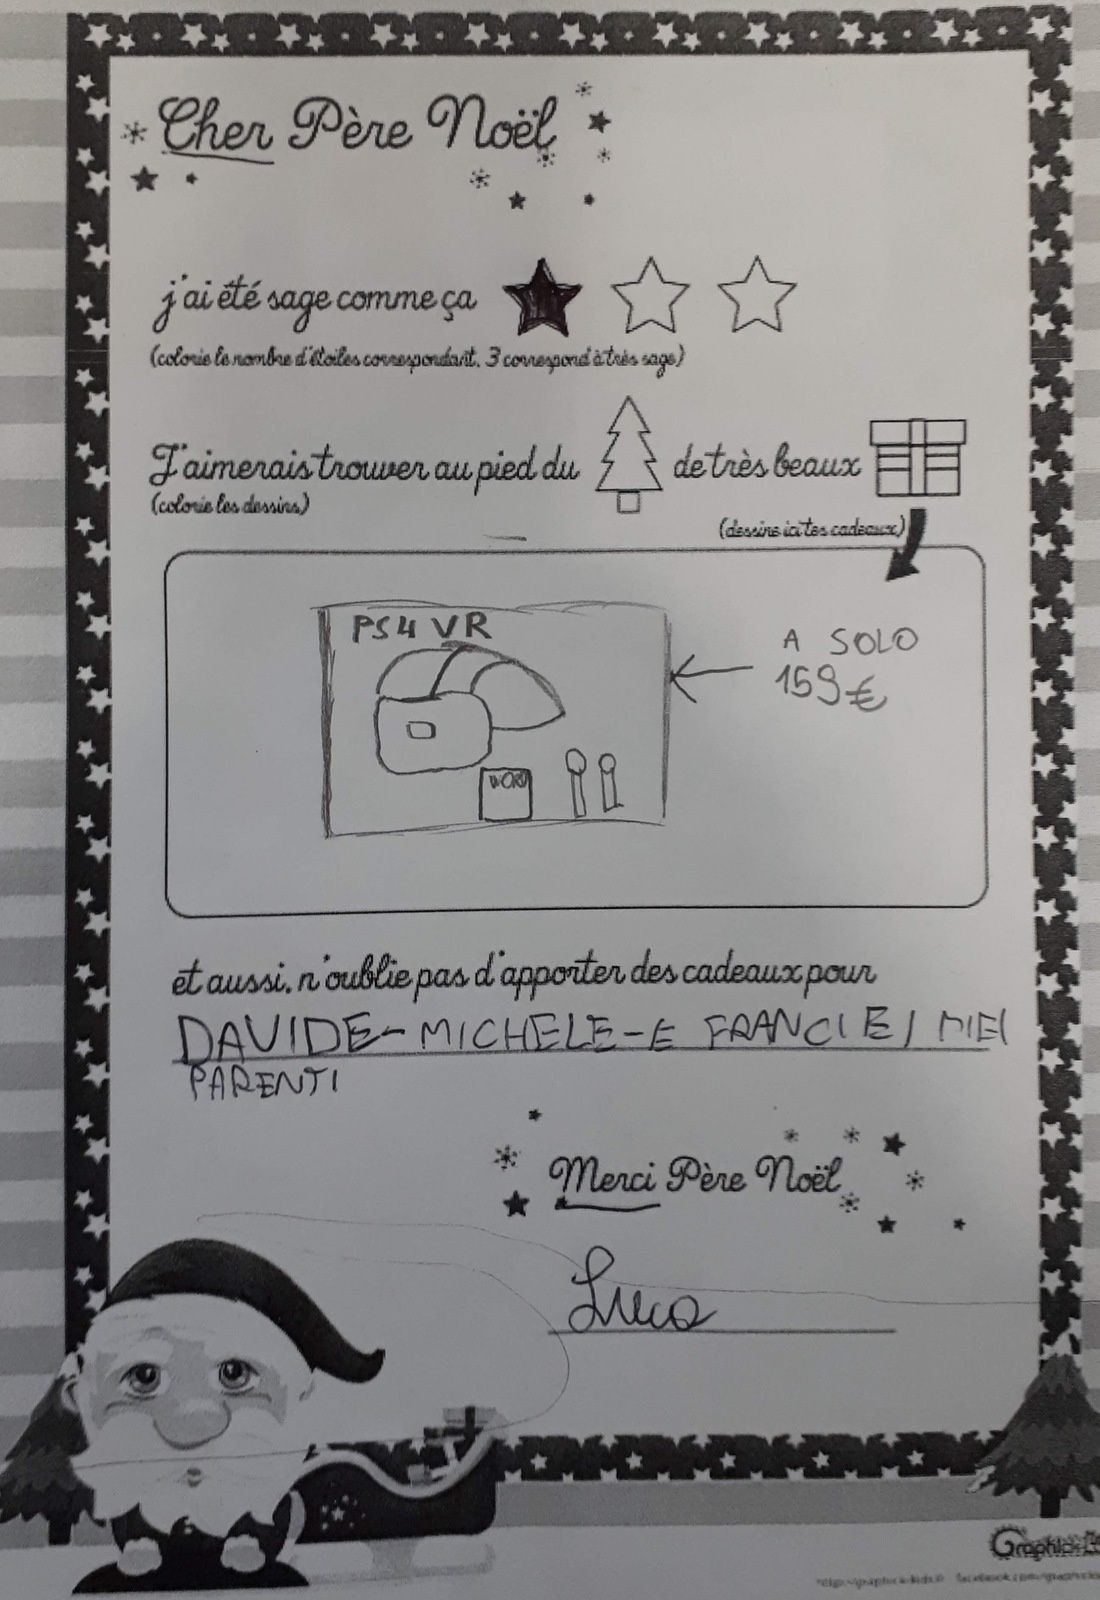 Cher Père Noël
j'ai été sage comme ça
(colorie le nombre d'étoiles correspondant, 3 correspond à très sage)
J'aimerais trouver au pied du de très beaux
(colorie les dessins)
(dessine ici tes cadeaux)
PS4 VR
A SOLO
159€
WORD
et aussi, n'oublie pas d'apporter des cadeaux pour
DAVIDE-MICHELE-E FRANCI E I MIEI
PARENTI
Merci Père Noël
Luca